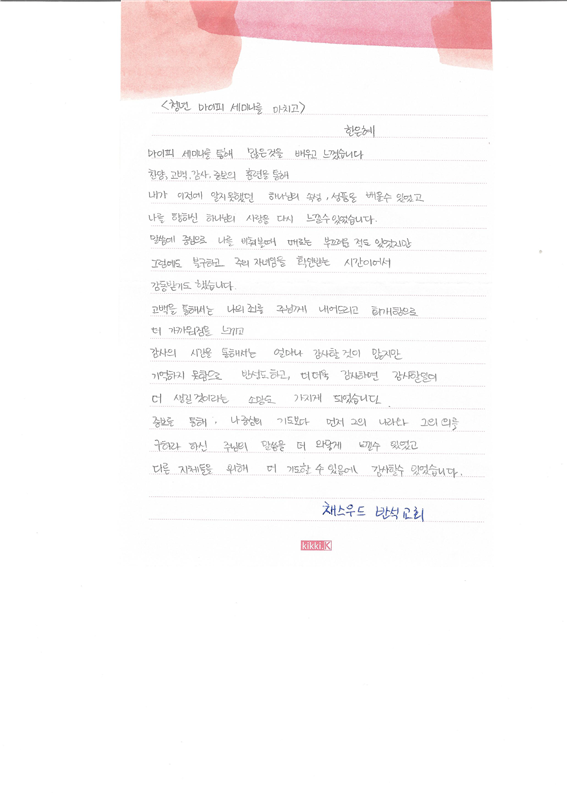 <청년 마이피 세미나를 마치고>
한은혜
마이피 세미나를 통해 많은것을 배우고 느꼈습니다
찬양, 고백, 감사, 중보의 훈련을 통해
내가 이전에 알지못했던 하나님의 속성, 성품을 배울수 있었고
나를 향하신 하나님의 사랑을 다시 느낄수있었습니다.
말씀에 중심으로 나를 비춰볼때 때로는 부끄러울 적도 있었지만
그럼에도 불구하고 주의 자녀됨을 확인받는 시간이어서
감동받기도 했습니다.
고백을 통해서는 나의 죄를 주님께 내어드리고 회개함으로
더 가까워짐을 느끼고
감사의 시간을 통해서는 얼마나 감사할 것이 많지만
기억하지 못함으로 반성도하고, 더더욱 감사하면 감사할일이
더 생길것이라는 소망도 가지게 되었습니다.
중보를 통해. 나 중심의 기도보다 먼저 그의 나라와 그의 의를
구하라 하신 주님의 말씀을 더 와닿게 느낄수 있었고
다른 지체들을 위해 더 기도할 수 있음에 감사할수 있었습니다.
채스우드 반석교회
kikki.K